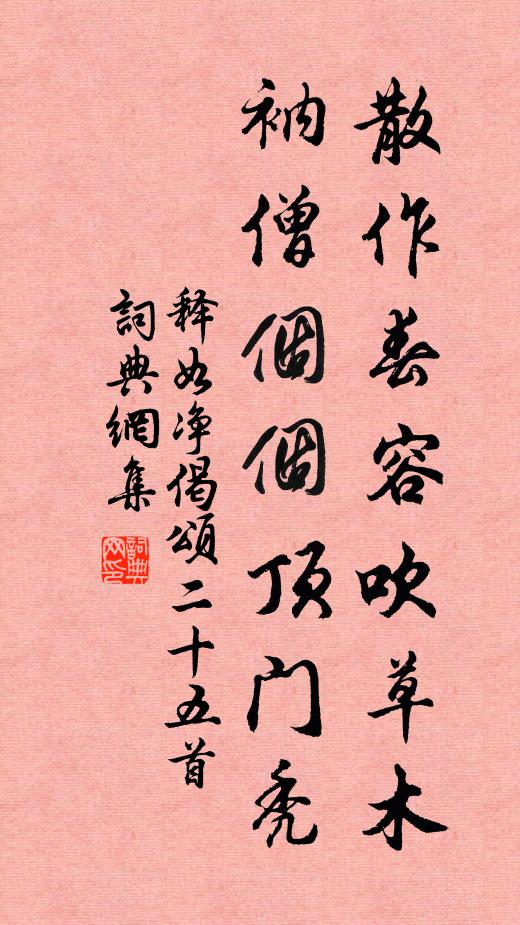 散作春容吹草木
衲僧個個顶门秃
释如净偈頌二十五首
詞典網集
詞典网印